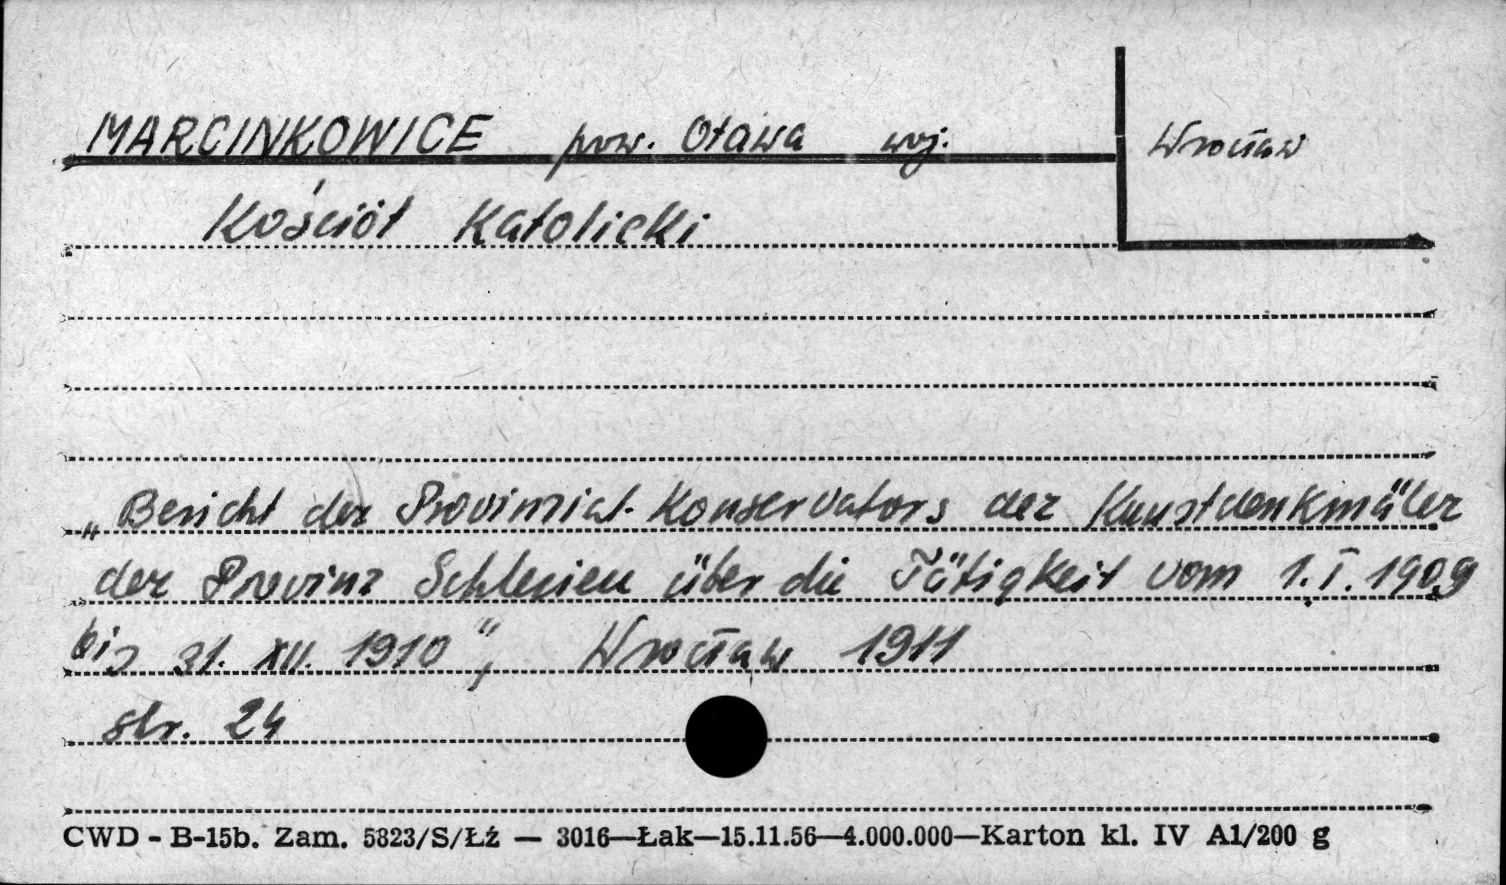 MARCINKOWICE pow. Oława woj. Wrocław
Kościół Katolicki
„Bericht des Provinzial-Konservators der Kunstdenkmäler
der Provinz Schlesien über die Tätigkeit vom 1.I.1909
bis 31. XII. 1910", Wrocław 1911
str. 24
CWD - B-15b. Zam. 5823/S/Łź — 3016—Łak—15.11.56—4.000.000—Karton kl. IV A1/200 g